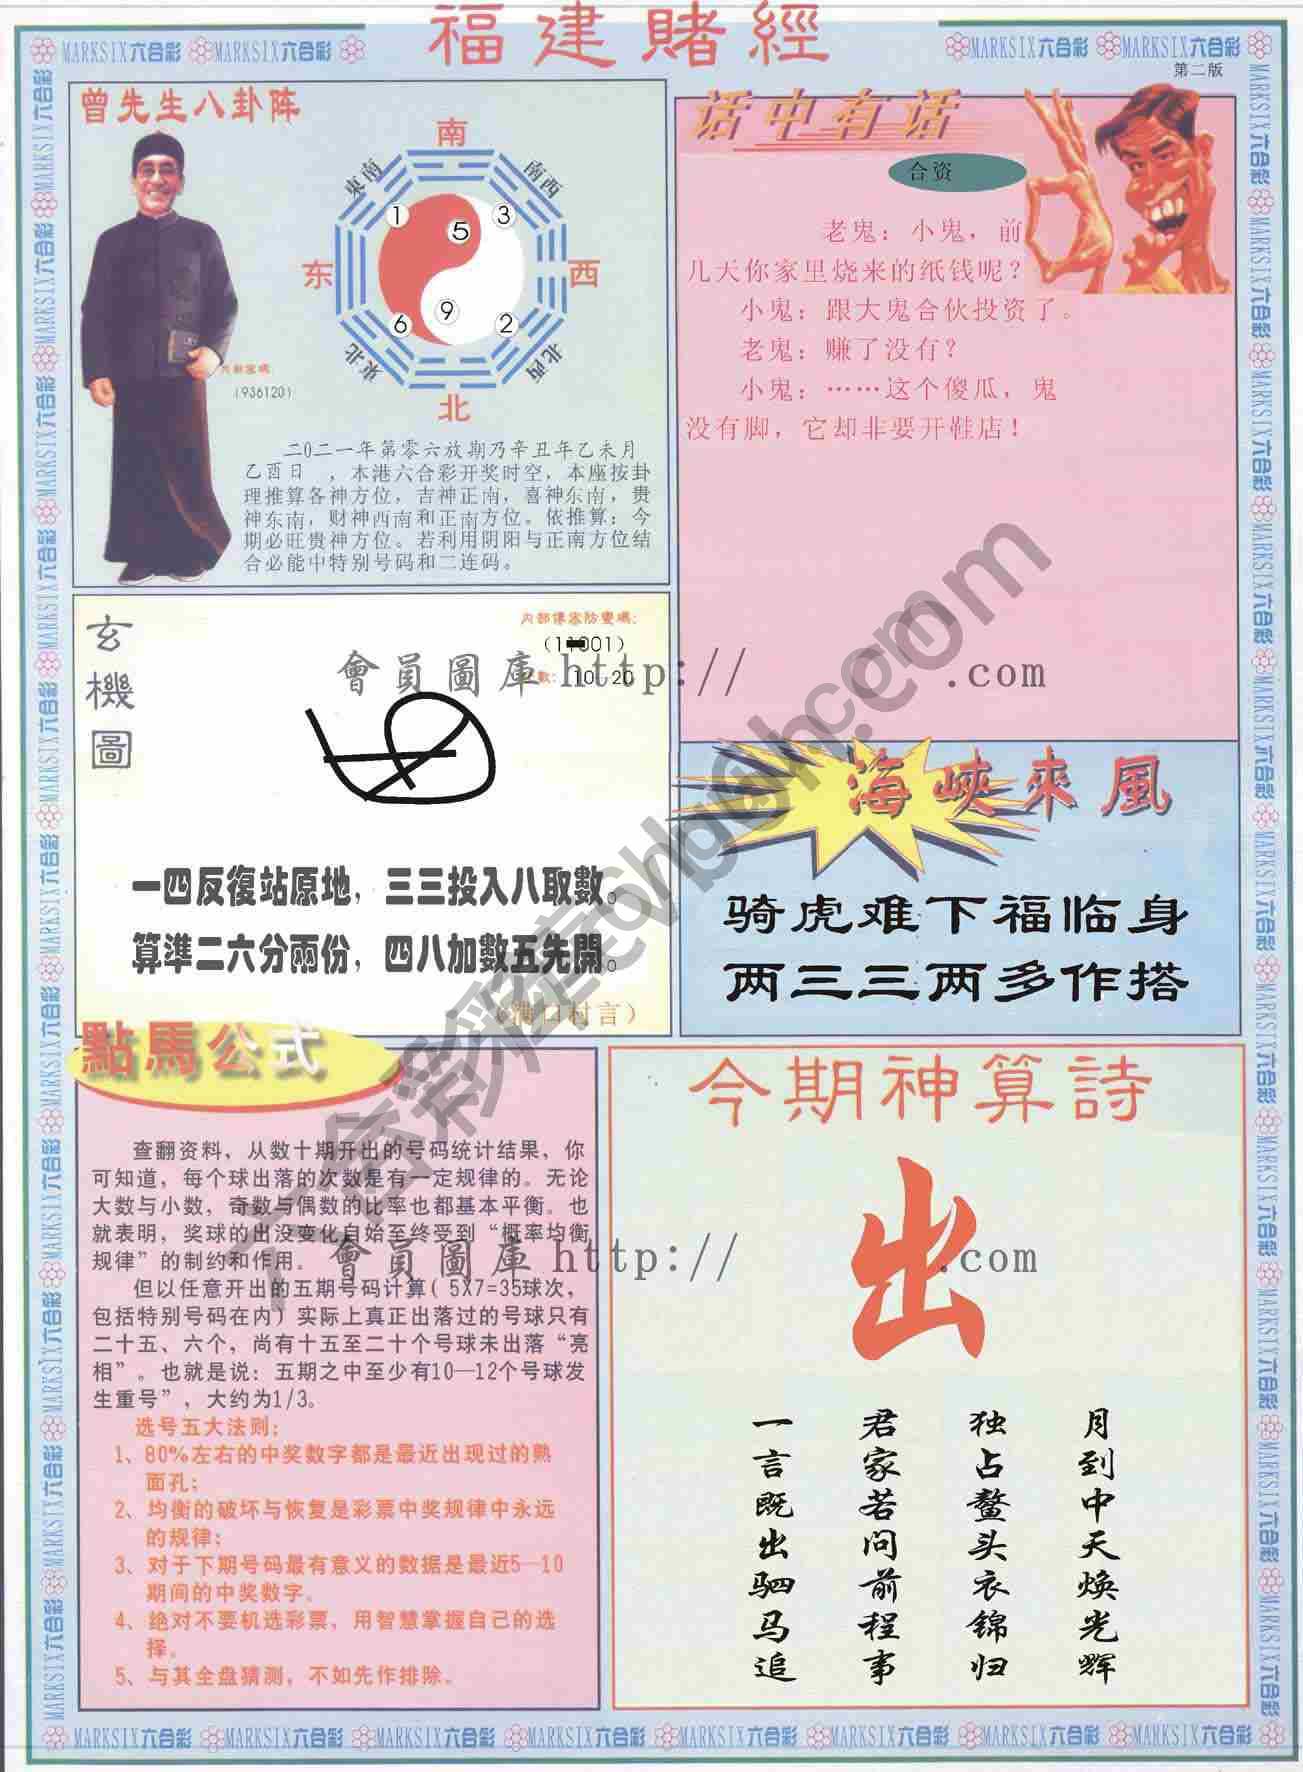 福建賭經
MARKSIX六合彩 MARKSIX六合彩
MARKSIX六合彩 MARKSIX六合彩
第二版
曾先生八卦阵
南
東南
南西
1
5
3
东
西
6
9
2
東北
北西
北
(936120)
二O二一年第零六放期乃辛丑年乙未月
乙酉日 ，本港六合彩开奖时空，本座按卦
理推算各神方位，吉神正南，喜神东南，贵
神东南，财神西南和正南方位。依推算：今
期必旺贵神方位。若利用阴阳与正南方位结
合必能中特别号码和二连码。
话中有话
合资
老鬼：小鬼，前
几天你家里烧来的纸钱呢？
小鬼：跟大鬼合伙投资了。
老鬼：赚了没有？
小鬼：……这个傻瓜，鬼
没有脚，它却非要开鞋店！
玄機圖
10 20
會員圖庫 http:// .com
一四反復站原地，三三投入八取數。
算準二六分兩份，四八加數五先開。
（满口村言）
海峽來風
骑虎难下福临身
两三三两多作搭
點馬公式
查翻资料，从数十期开出的号码统计结果，你
可知道，每个球出落的次数是有一定规律的。无论
大数与小数，奇数与偶数的比率也都基本平衡。也
就表明，奖球的出没变化自始至终受到“概率均衡
规律”的制约和作用。
但以任意开出的五期号码计算( 5X7=35球次，
包括特别号码在内）实际上真正出落过的号球只有
二十五、六个，尚有十五至二十个号球未出落“亮
相”。也就是说：五期之中至少有10—12个号球发
生重号”，大约为1/3。
选号五大法则：
1、80%左右的中奖数字都是最近出现过的熟
面孔；
2、均衡的破坏与恢复是彩票中奖规律中永远
的规律；
3、对于下期号码最有意义的数据是最近5—10
期间的中奖数字。
4、绝对不要机选彩票，用智慧掌握自己的选
择。
5、与其全盘猜测，不如先作排除。
會員圖庫 http:// .com
今期神算詩
出
月到中天焕光辉
独占鳌头衣锦归
君家若问前程事
一言既出驷马追
MARKSIX六合彩 MARKSIX六合彩 MARKSIX六合彩 MARKSIX六合彩 MARKSIX六合彩 MARKSIX六合彩 MARKSIX六合彩 MARKSIX六合彩